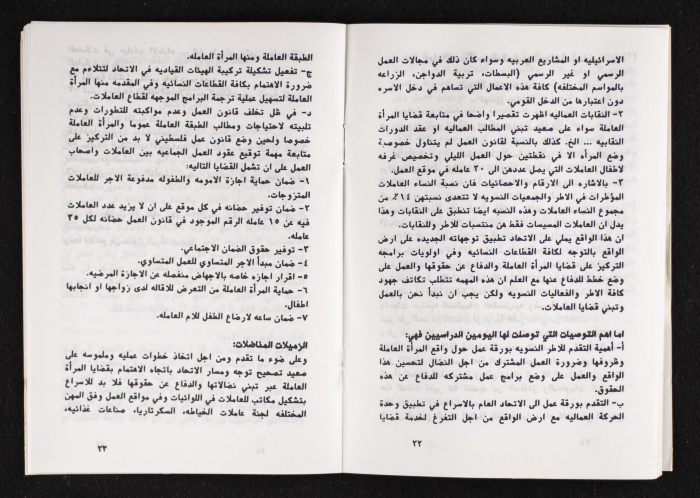 الاسرائيليه او المشاريع العربيه وسواء كان ذلك في مجالات العمل
الرسمي او غير الرسمي (البسطات، تربية الدواجن، الزراعه
بالمواسم المختلفه) كافة هذه الاعمال التي تساهم في دخل الاسره
دون اعتبارها من الدخل القومي.
٢- النقابات العماليه اظهرت تقصيرا واضحا في متابعة قضايا المرأة
العاملة سواء على صعيد تبني المطالب العماليه او عقد الدورات
النقابيه ... الخ. كذلك بالنسبة لقانون العمل لم يتناول خصوصية
وضع المرأه الا في نقطتين حول العمل الليلي وتخصيص غرفه
لاطفال العاملات التي يصل عددهن الى ٣٠ عامله في موقع العمل.
٣- بالاشاره الى الارقام والاحصائيات فان نسبة النساء العاملات
المؤطرات في الاطر والجمعيات النسويه لا تتعدى نسبتهن ١٤٪ من
مجموع النساء العاملات وهذه النسبه ايضا تنطبق على النقابات وهذا
يدل ان العاملات المسيسات فقط هن منتسبات للاطر وللنقابات.
ان هذا الواقع يملي على الاتحاد تطبيق توجهاته الجديده على ارض
الواقع بالتوجه لكافة القطاعات النسائيه وفي اولويات برامجه
التركيز على قضايا المرأة العاملة والدفاع عن حقوقها والعمل على
وضع خطط للدفاع عنها مع العلم ان هذه المهمه تتطلب تكاتف جهود
كافة الاطر والفعاليات النسويه ولكن يجب ان نبدأ نحن بالعمل
وتبني قضايا العاملات.
اما اهم التوصيات التي توصلت لها اليومين الدراسيين فهي:
أ- أهمية التقدم للاطر النسويه بورقة عمل حول واقع المرأة العاملة
وظروفها وضرورة العمل المشترك من اجل النضال لتحسين هذا
الواقع والعمل على وضع برامج عمل مشتركه للدفاع عن هذه
الحقوق.
ب- التقدم بورقة عمل الى الاتحاد العام بالاسراع في تطبيق وحدة
الحركة العماليه مع ارض الواقع من اجل التفرغ لخدمة قضايا
٢٢
الطبقة العاملة ومنها المرأة العامله.
ج- تفعيل تشكيلة تركيبة الهيئات القياديه في الاتحاد لتتلاءم مع
ضرورة الاهتمام بكافة القطاعات النسائيه وفي المقدمه منها المرأة
العاملة لتسهيل عملية ترجمة البرامج الموجهه لقطاع العاملات.
د- في ظل تخلف قانون العمل وعدم مواكبته للتطورات وعدم
تلبيته لاحتياجات ومطالب الطبقة العاملة عموما والمرأة العاملة
خصوصا ولحين وضع قانون عمل فلسطيني لا بد من التركيز على
متابعة مهمة توقيع عقود العمل الجماعيه بين العاملات واصحاب
العمل على ان تشمل القضايا التاليه:
١- ضمان حماية اجازة الامومه والطفوله مدفوعة الاجر للعاملات
المتزوجات.
٢- ضمان توفير حضانه في كل موقع على ان لا يزيد عدد العاملات
فيه عن ١٥ عامله الرقم الموجود في قانون العمل حضانه لكل ٣٥
عامله.
٣- توفير حقوق الضمان الاجتماعي.
٤- ضمان مبدأ الاجر المتساوي للعمل المتساوي.
٥- اقرار اجازه خاصه بالاجهاض منفصله عن الاجازة المرضيه.
٦- حماية المرأة العاملة من التعرض للاقاله لدى زواجها او انجابها
اطفال.
٧- ضمان ساعه لارضاع الطفل للام العامله.
الزميلات المناضلات:
وعلى ضوء ما تقدم ومن اجل اتخاذ خطوات عمليه وملموسه على
صعيد تصحيح توجه ومسار الاتحاد باتجاه الاهتمام بقضايا المرأة
العاملة عبر تبني نضالاتها والدفاع عن حقوقها فلا بد للاسراع
بتشكيل مكاتب للعاملات في اللوائيات وفي مواقع العمل وفق المهن
المختلفه لجنة عاملات الخياطه، السكرتاريا، صناعات غذائيه،
٢٣